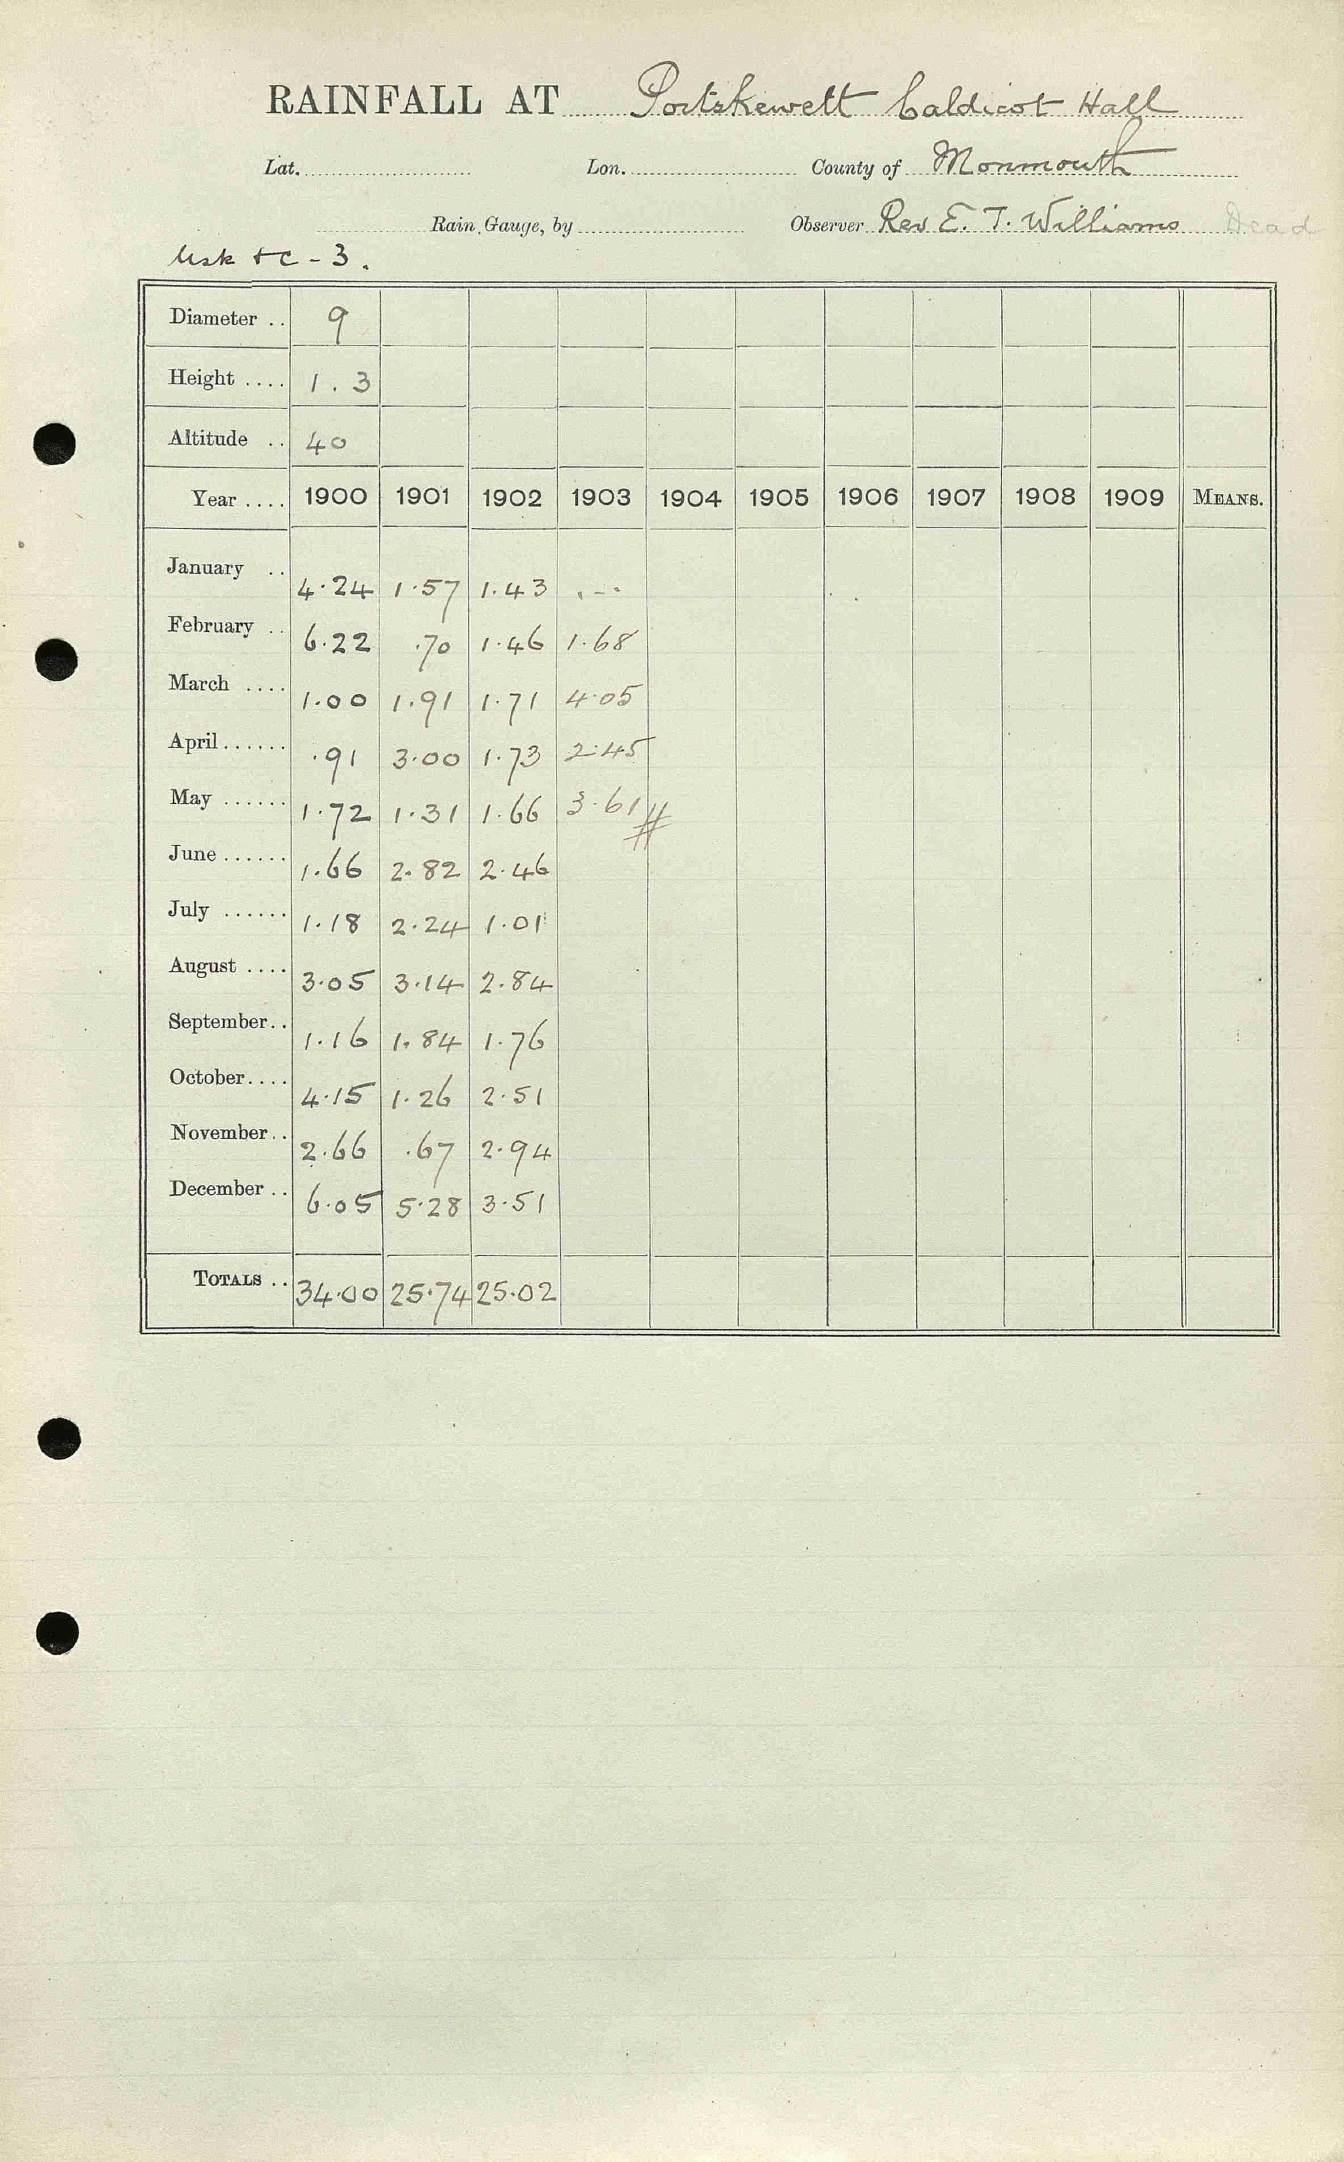 RAINFALL AT Portskewett Caldicot Hall
Lat. Lon. County of Monmouth
Rain Gauge, by Observer Rev E. T. Williams Dead
Usk &c - 3.
Diameter .. 9
Height .... 1.3
Altitude .. 40
Year .... 1900 1901 1902 1903 1904 1905 1906 1907 1908 1909 MEANS.
January .. 4.24 1.57 1.43 . - .
February .. 6.22 .70 1.46 1.68
March .... 1.00 1.91 1.71 4.05
April ...... .91 3.00 1.73 2.45
May ...... 1.72 1.31 1.66 3.61 #
June ...... 1.66 2.82 2.46
July ...... 1.18 2.24 1.01
August .... 3.05 3.14 2.84
September .. 1.16 1.84 1.76
October .... 4.15 1.26 2.51
November .. 2.66 .67 2.94
December .. 6.05 5.28 3.51
TOTALS .. 34.00 25.74 25.02